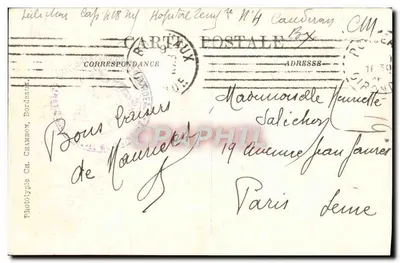 Salichon Cap 408 Inf Hopital Temp re N°4 Caudéran
Bx
CM
CARTE POSTALE
CORRESPONDANCE
ADRESSE
Mademoiselle Henriette
Salichon
19 Avenue Jean Jaurès
Paris Seine
Bons baisers
de Maurice
Phototypie Ch. Chambon, Bordeaux.